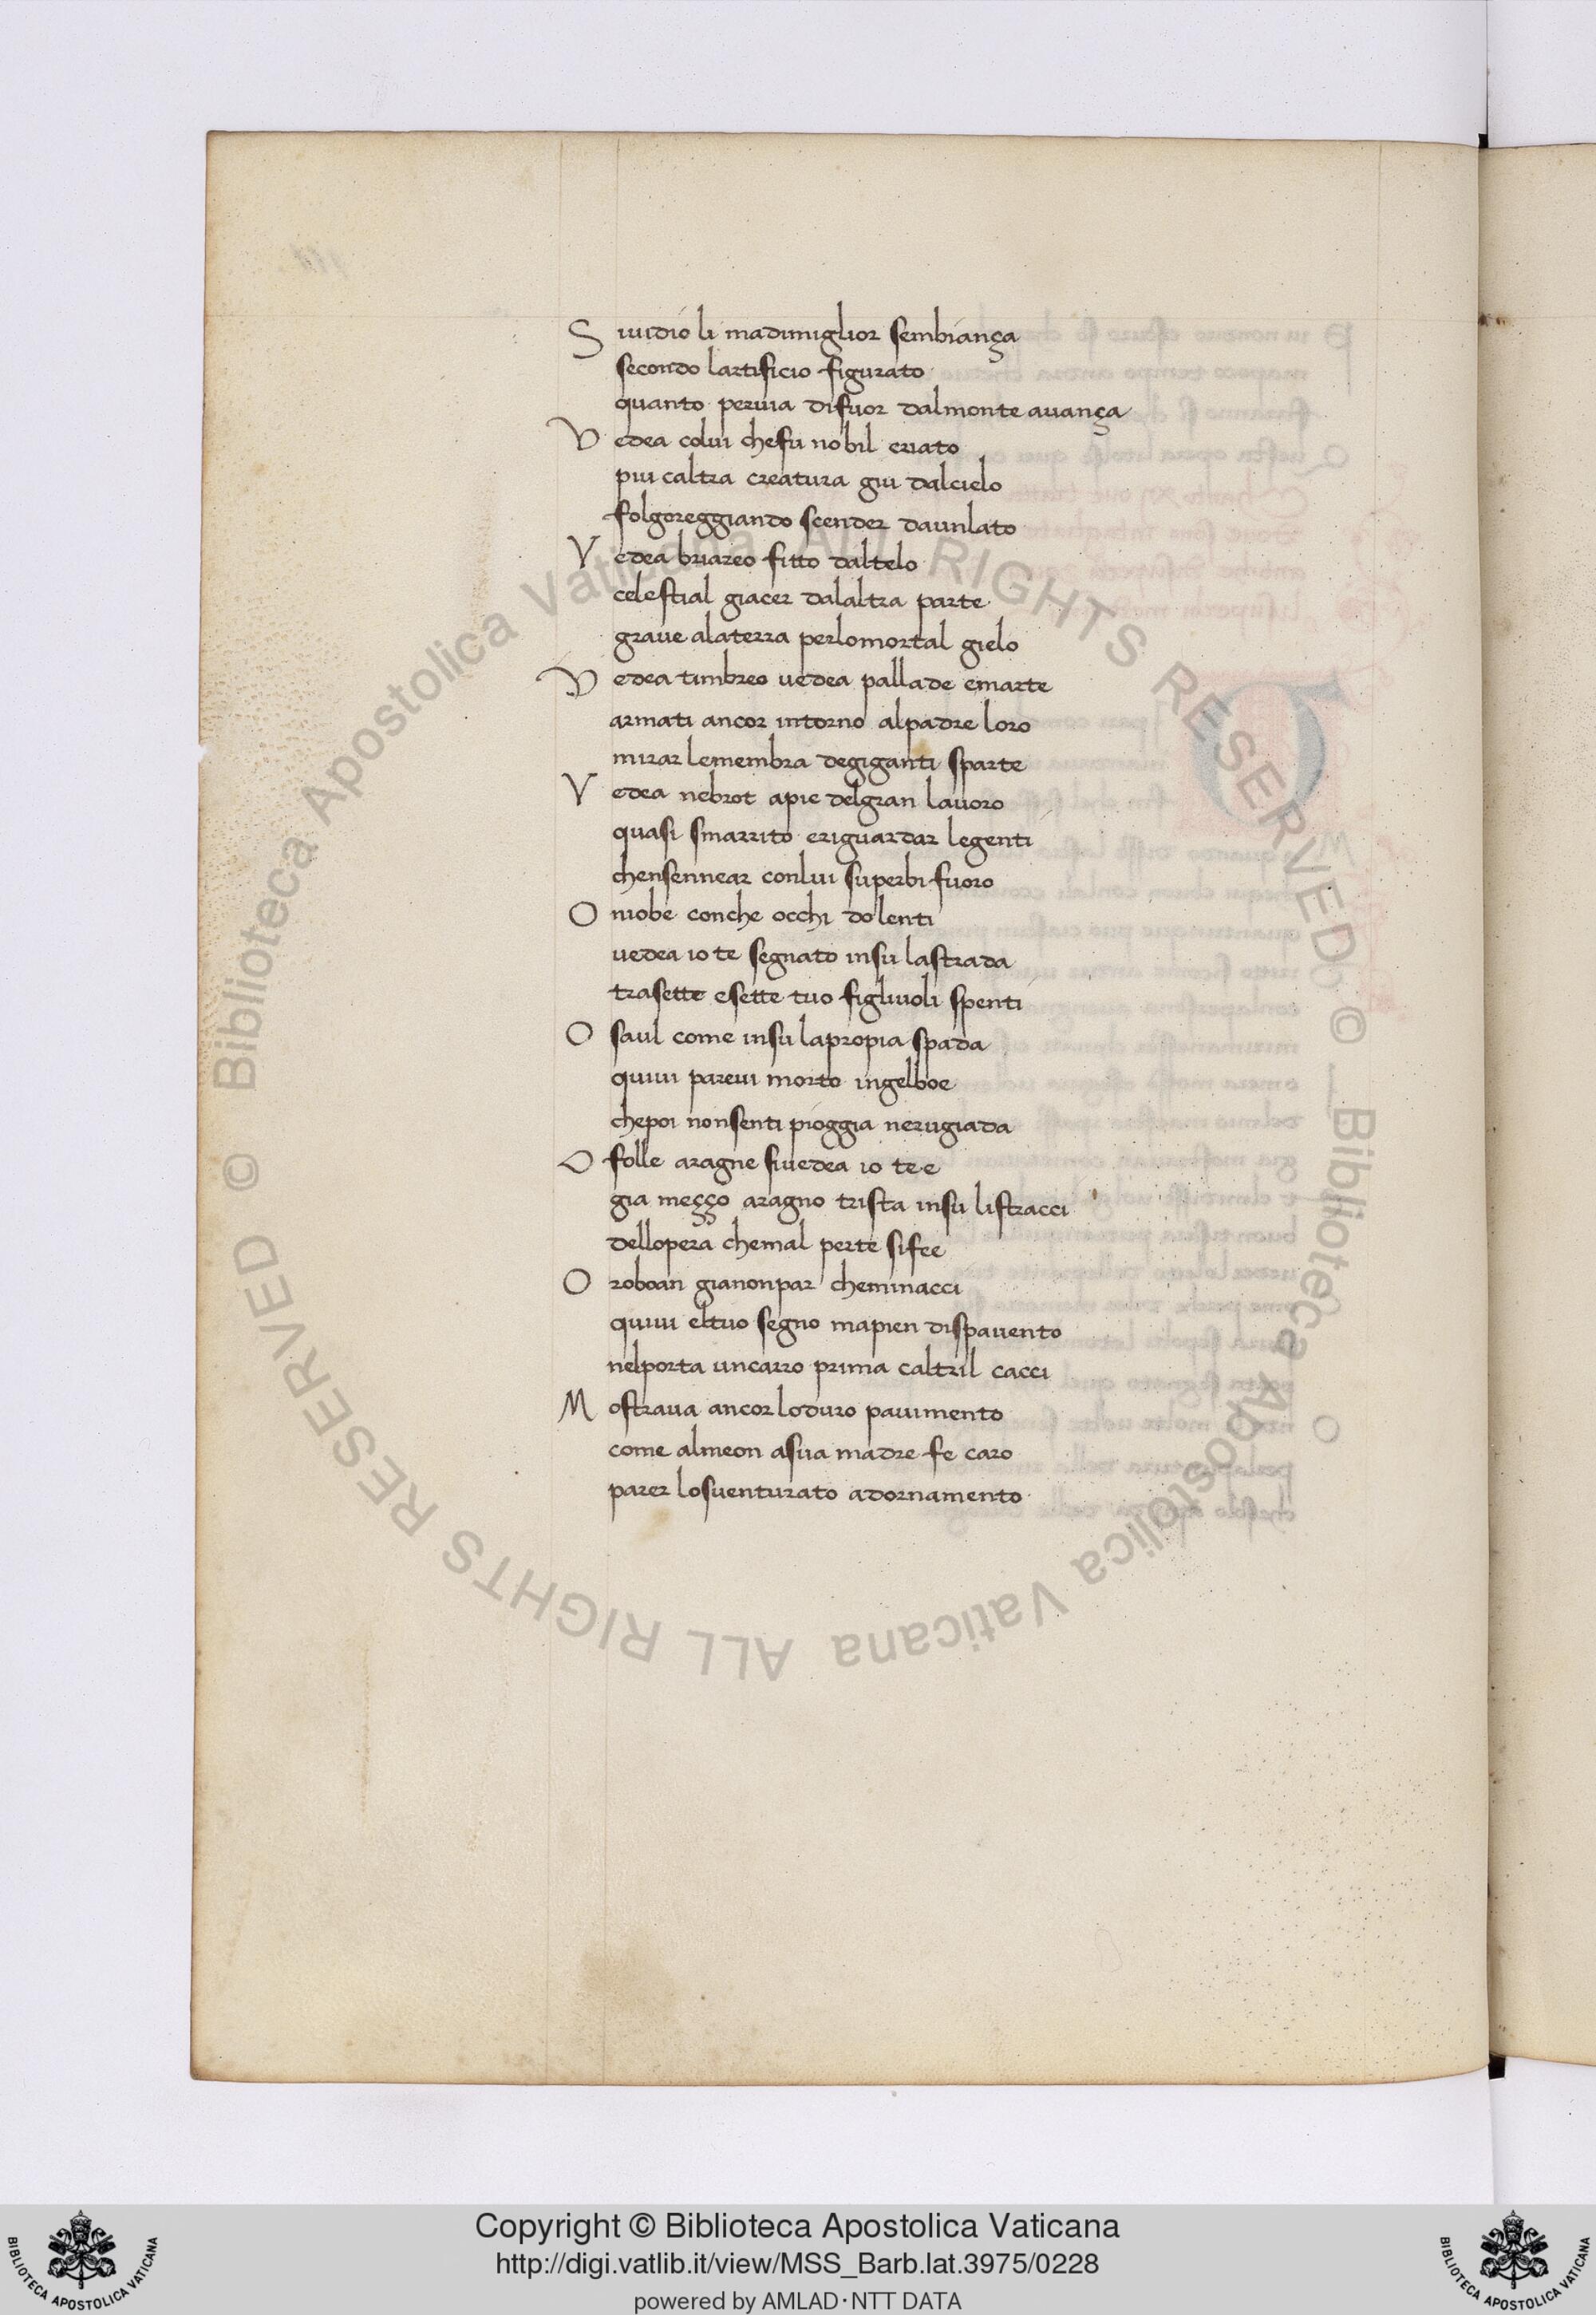 S iuidio li madimiglior sembiança
secondo lartificio figurato
quanto peruia difuor dalmonte auança
V edea colui chefu nobil criato
piu caltra creatura giu dalcielo
folgoreggiando scender daunlato
V edea briareo fitto daltelo
celestial giacer dalaltra parte
graue alaterra perlomortal gielo
V edea timbreo uedea pallade emarte
armati ancor intorno alpadre loro
mirar lemembra degiganti sparte
V edea nebrot apie delgran lauoro
quasi smarrito eriguardar legenti
chensennear conlui superbi fuoro
O niobe conche occhi dolenti
uedea io te segnato insu lastrada
trasette esette tuo figliuoli spenti
O saul come insu lapropia spada
quiui pareui morto ingelboe
chepoi nonsenti pioggia nerugiada
O folle aragne siuedea io te e
gia meçço aragno trista insu listracci
dellopera chemal perte sifee
O roboan gianonpar cheminacci
quiui eltuo segno mapien dispauento
nelporta uncarro prima caltril cacci
M ostraua ancor loduro pauimento
come almeon asua madre fe caro
parer losuenturato adornamento
Copyright © Biblioteca Apostolica Vaticana
http://digi.vatlib.it/view/MSS_Barb.lat.3975/0228
powered by AMLAD·NTT DATA
© Biblioteca Apostolica Vaticana ALL RIGHTS RESERVED
© Biblioteca Apostolica Vaticana ALL RIGHTS RESERVED
BIBLIOTECA APOSTOLICA VATICANA
BIBLIOTECA APOSTOLICA VATICANA